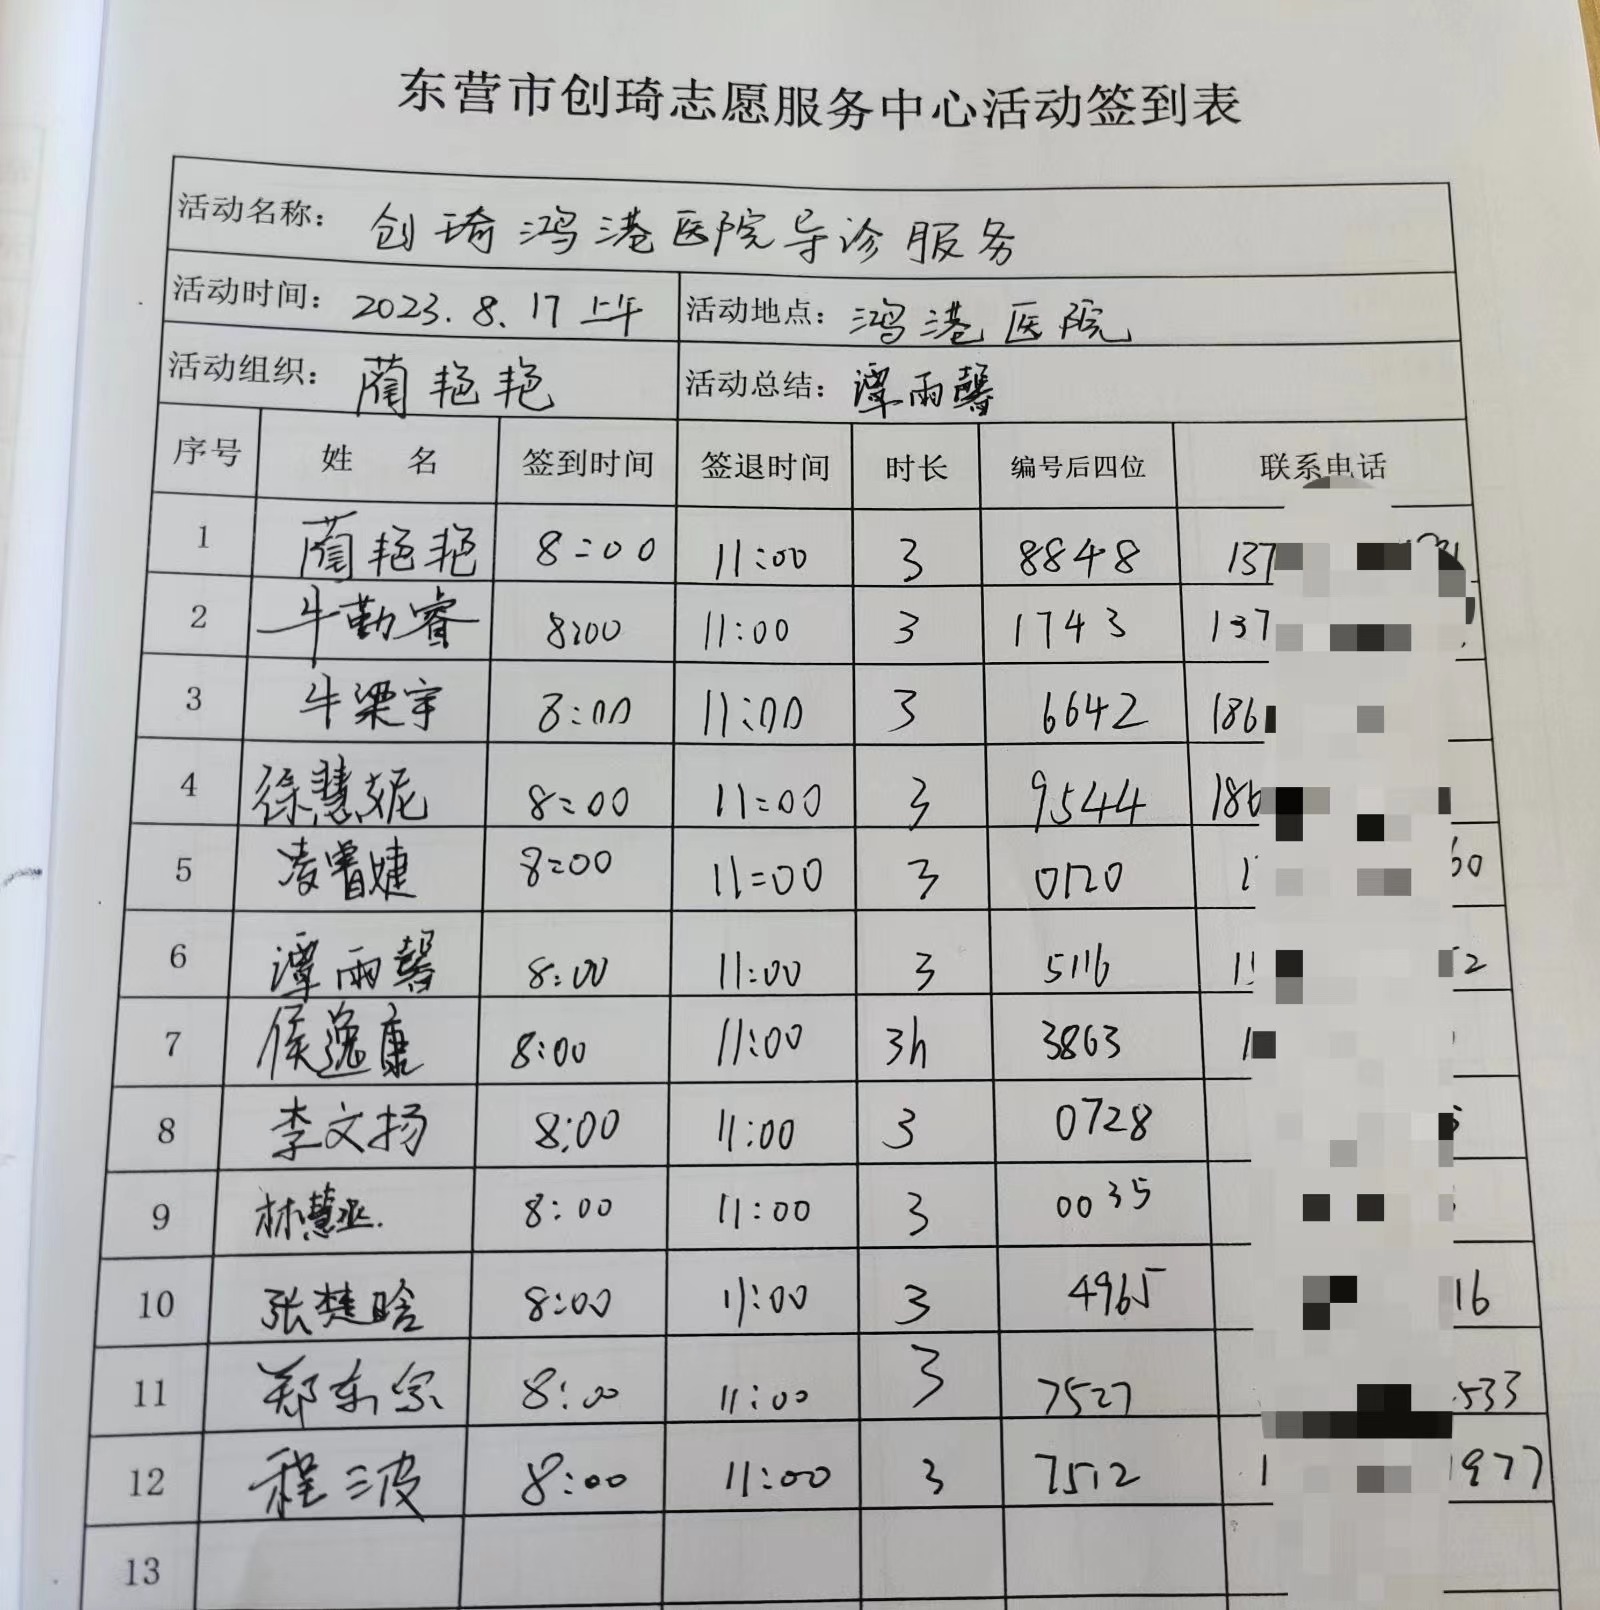 东营市创琦志愿服务中心活动签到表
活动名称: 创琦鸿港医院导诊服务
活动时间: 2023.8.17上午 活动地点: 鸿港医院
活动组织: 蔺艳艳 活动总结: 谭雨馨
序号 姓 名 签到时间 签退时间 时长 编号后四位 联系电话
1 蔺艳艳 8:00 11:00 3 8848 137
2 牛勤睿 8:00 11:00 3 1743 137
3 牛梁宇 8:00 11:00 3 6642 186
4 徐慧妮 8:00 11:00 3 9544 186
5 凌睿婕 8:00 11:00 3 0120 1 60
6 谭雨馨 8:00 11:00 3 5116 1 52
7 侯逸康 8:00 11:00 3h 3863 1
8 李文扬 8:00 11:00 3 0728
9 林慧丞 8:00 11:00 3 0035
10 张楚晗 8:00 11:00 3 4965 16
11 郑东宗 8:00 11:00 3 7527 533
12 程三波 8:00 11:00 3 7512 1 1977
13